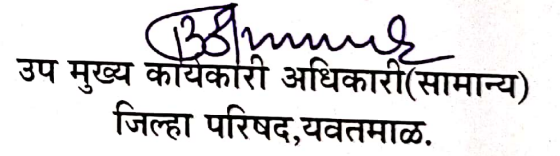 उप मुख्य कार्यकारी अधिकारी(सामान्य)
जिल्हा परिषद,यवतमाळ.